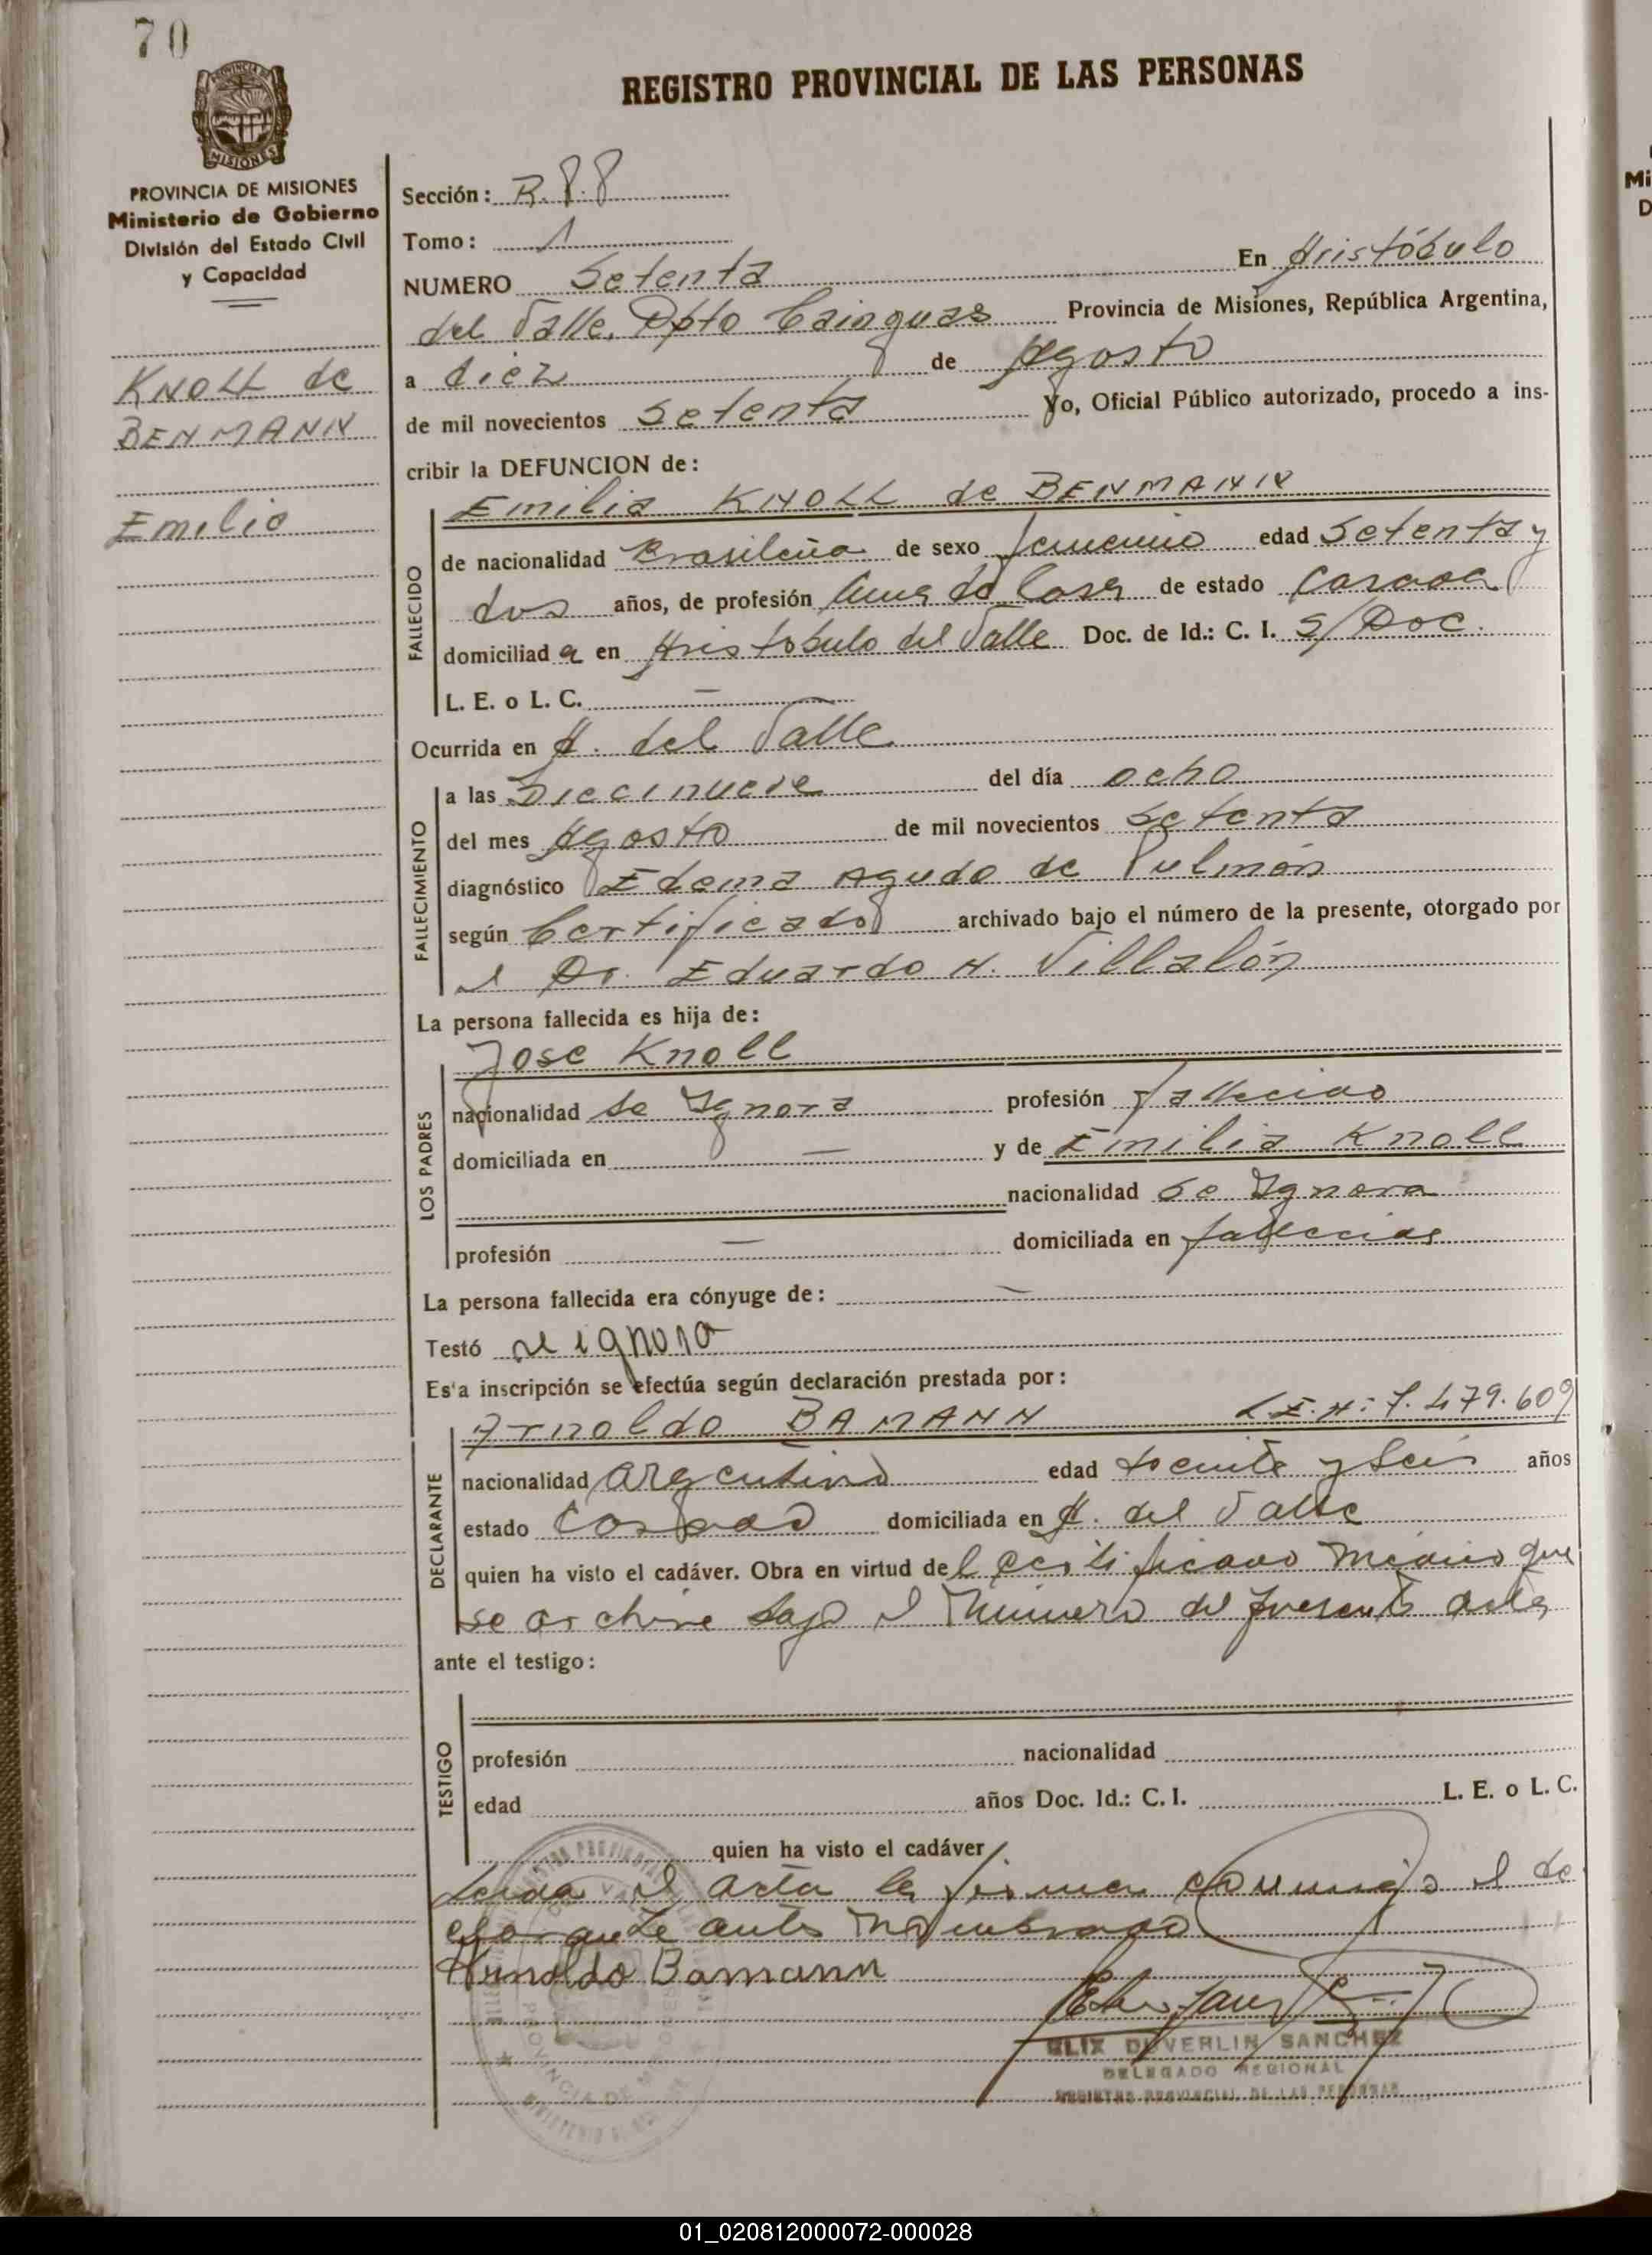 70
REGISTRO PROVINCIAL DE LAS PERSONAS
PROVINCIA DE MISIONES
PROVINCIA DE MISIONES
Ministerio de Gobierno
División del Estado Civil
y Capacidad
KNOLL de
BENMANN
Emilia
Sección: R. 88
Tomo: 1
NUMERO Setenta En Aristóbulo
del Valle, Dpto Cainguas Provincia de Misiones, República Argentina,
a diez de Agosto
de mil novecientos Setenta Yo, Oficial Público autorizado, procedo a ins-
cribir la DEFUNCION de:
Emilia KNOLL de BENMANN
FALLECIDO
de nacionalidad Brasileña de sexo femenino edad Setenta y
dos años, de profesión Ama de Casa de estado Casada
domiciliad a en Aristobulo del Valle Doc. de Id.: C. I. S/Doc.
L. E. o L. C. —
Ocurrida en A. del Valle
FALLECIMIENTO
a las Diecinueve del día ocho
del mes Agosto de mil novecientos Setenta
diagnóstico Edema Agudo de Pulmón
según Certificado archivado bajo el número de la presente, otorgado por
el Dr. Eduardo H. Villalón
La persona fallecida es hija de:
Jose Knoll
LOS PADRES
nacionalidad Se Ignora profesión fallecido
domiciliada en — y de Emilia Knoll
nacionalidad Se Ignora
profesión — domiciliada en fallecida
La persona fallecida era cónyuge de: —
Testó se ignora
Es'a inscripción se efectúa según declaración prestada por:
Arnoldo BAMANN L.E.N: 7.479.609
DECLARANTE
nacionalidad Argentino edad veinte y Seis años
estado Casado domiciliada en A. del Valle
quien ha visto el cadáver. Obra en virtud del certificado médico que
se archiva bajo el Número del presente acta
ante el testigo:
TESTIGO
profesión nacionalidad
edad años Doc. Id.: C. I. L. E. o L. C.
quien ha visto el cadáver
Leida el acta la firma conmigo el de
clarante antes nombrado
Arnoldo Bamann
ELIX DUVERLIN SANCHEZ
DELEGADO REGIONAL
REGISTRO PROVINCIAL DE LAS PERSONAS
01_020812000072-000028